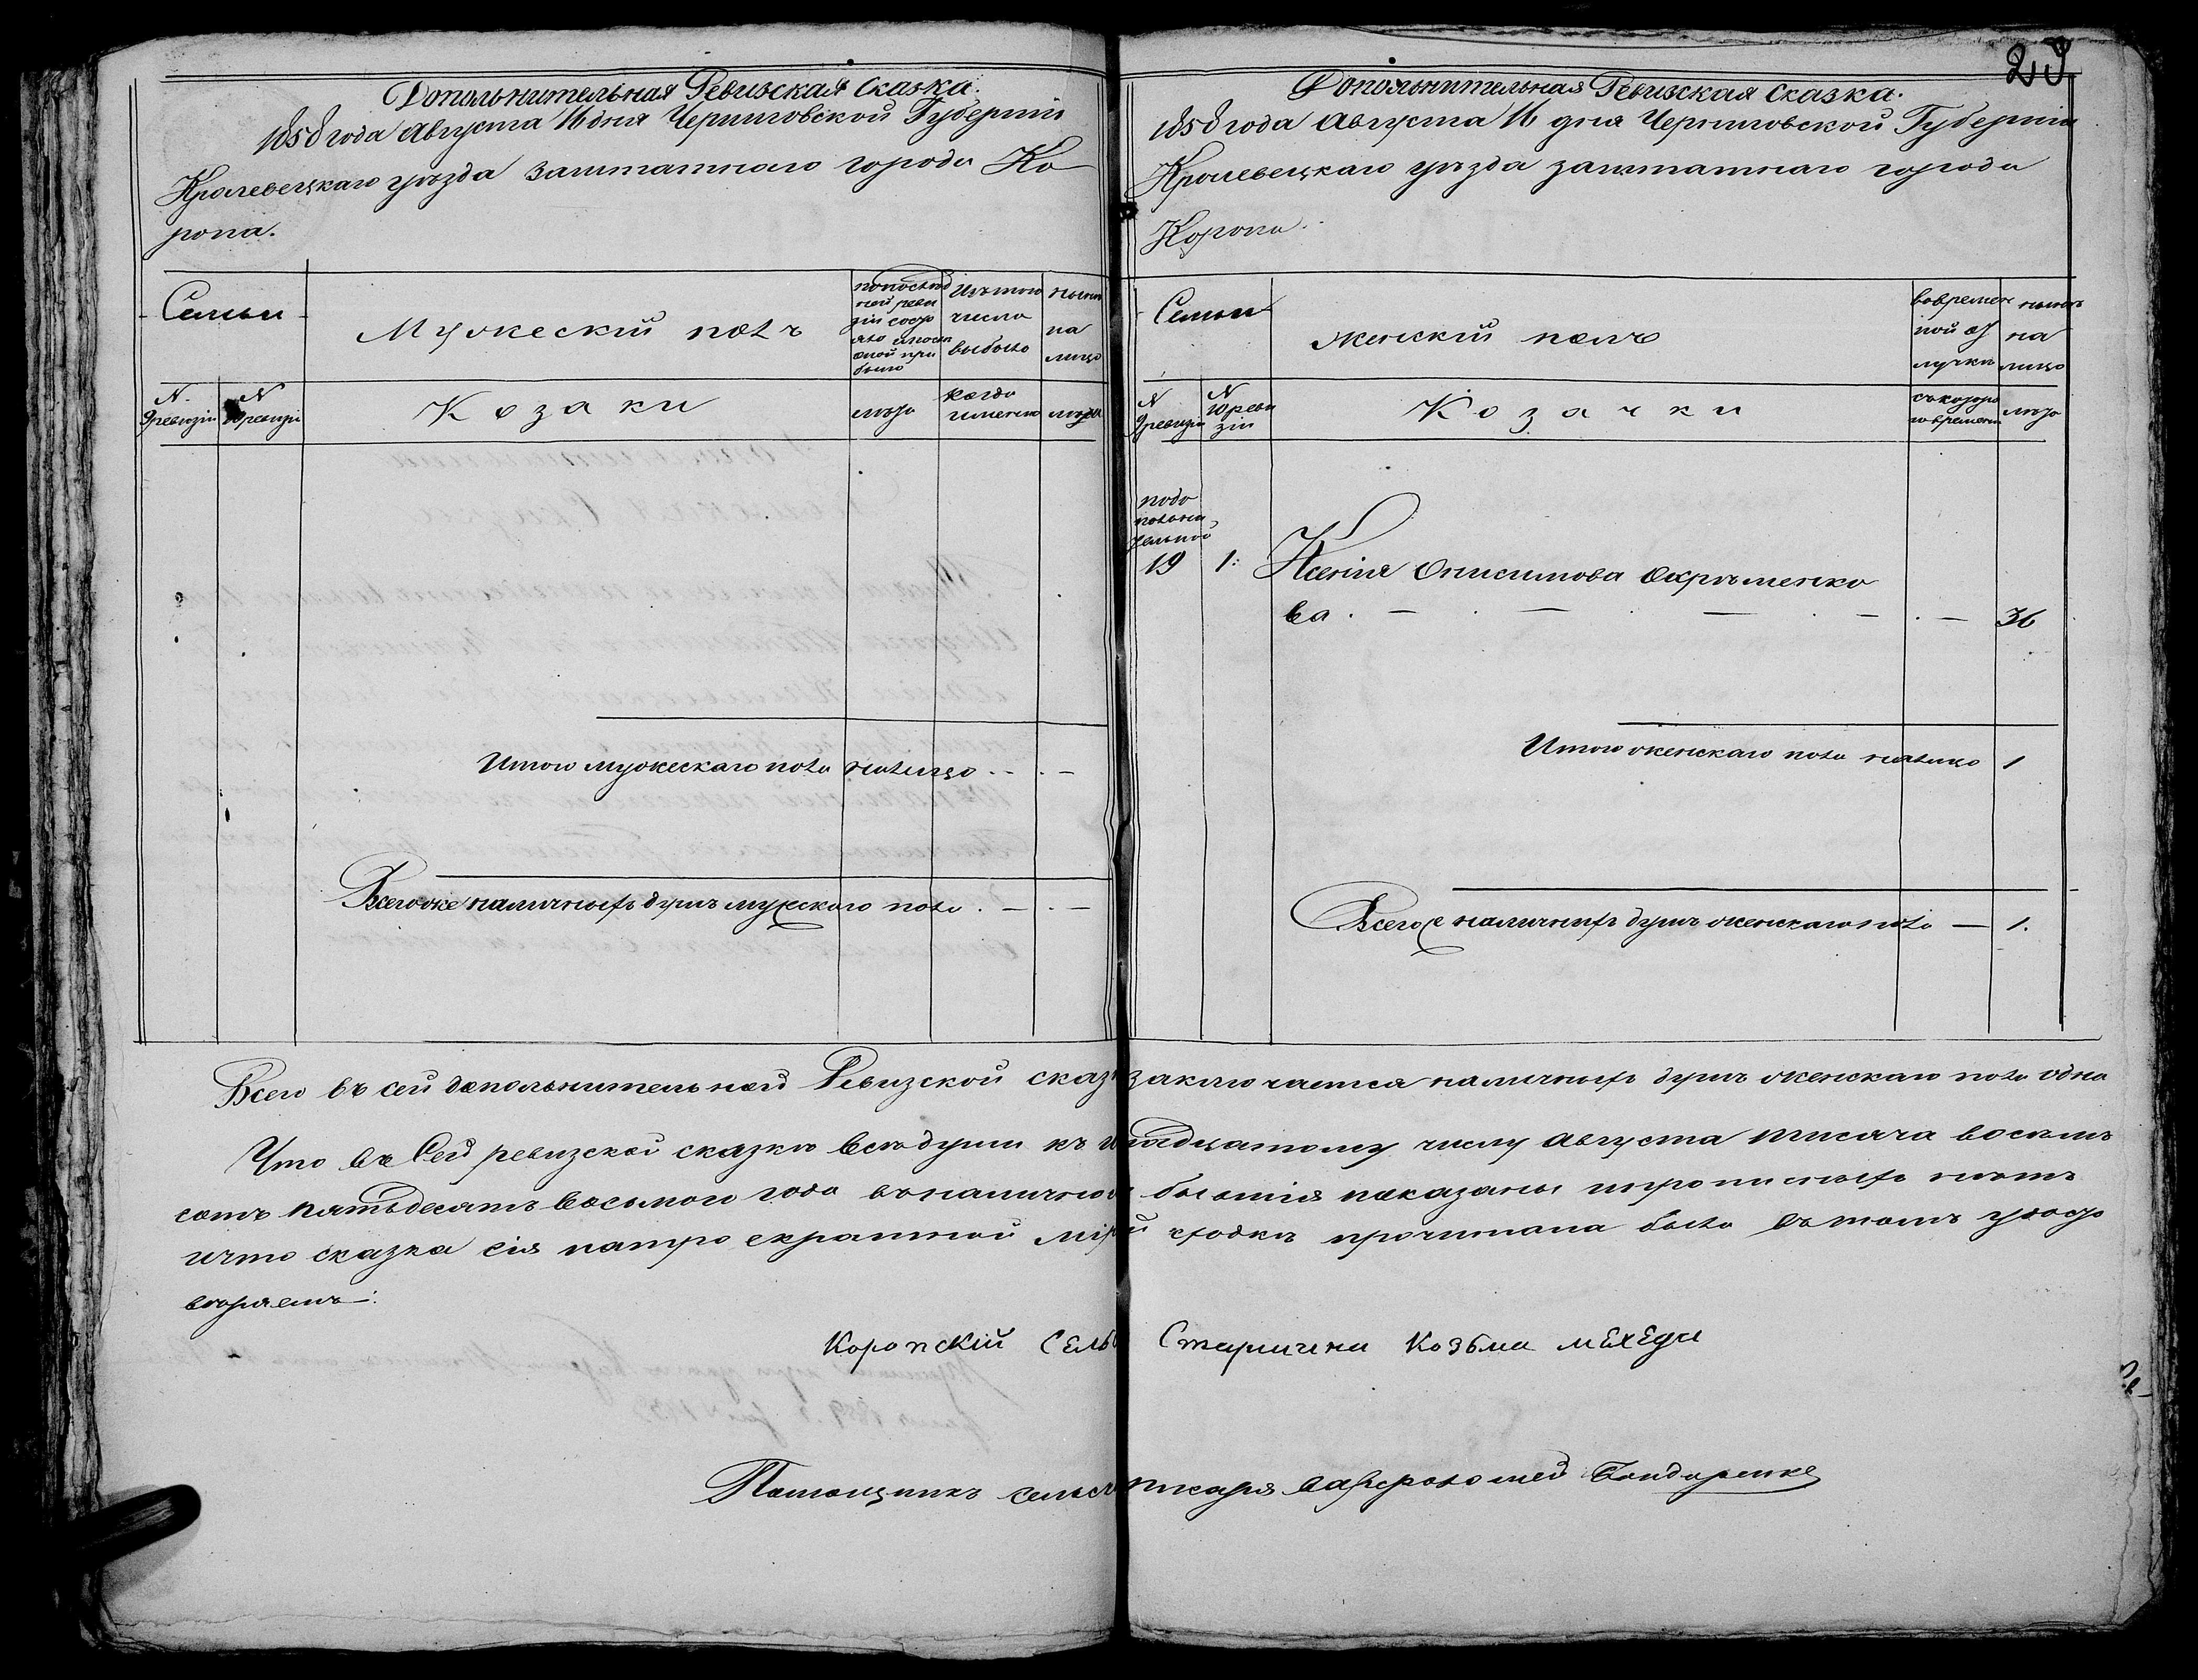 Допольнительная Ревизская сказка.
1858 года Августа 16 дня Черниговской Губерніи
Кролевецкаго уѣзда заштатнаго города Ко
ропа.
Семьи
Мужескій полъ
попослѣд
ней реви
зіи состо
было
Изътого
числа
выбыло
нынѣ
на
лицо
N
9 ревизіи
N
10 ревизіи
Козаки
лѣта
когда
именно
лѣта
Итого мужескаго пола налицо . — . —
Всегоже наличныхъ душъ мужескаго пола . — . —
23
Дополнительная Ревизская Сказка.
1858 года Августа 16 дня Черниговской Губерніи
Кролевецкаго уѣзда заштатнаго города
Коропа.
Семьи
женскій полъ
вовремен
ной от
лучкѣ
нынѣ
на
лицо
N
9 ревизіи
N
10 реви
зіи
Козачки
съкотора
говремени
лѣта
подо
полни
тельной
19 1. Ксенія Онисимова Охрѣменко
ва . — . — . — . — . — 36
Итого женскаго пола налицо 1
Всегоже наличныхъ душъ женскаго пола — 1.
Всего въ сей дополнительной Ревизской сказ заключается наличныхъ душъ женскаго пола одна
Что въ Сей ревизской сказкѣ всѣ души къ надцатому числу Августа тисяча восемъ
сотъ пятьдесятъ восьмого года вналично бытія показаны ипрописныхъ нѣтъ
ичто сказка сія натро екратной мір сходкѣ прочитана была вътомъ удосто
вѣряемъ:
Коропскій Сель Старшина Козьма мЕхЕда
Помощникъ сельс писаря Варфоломей Бондаренко